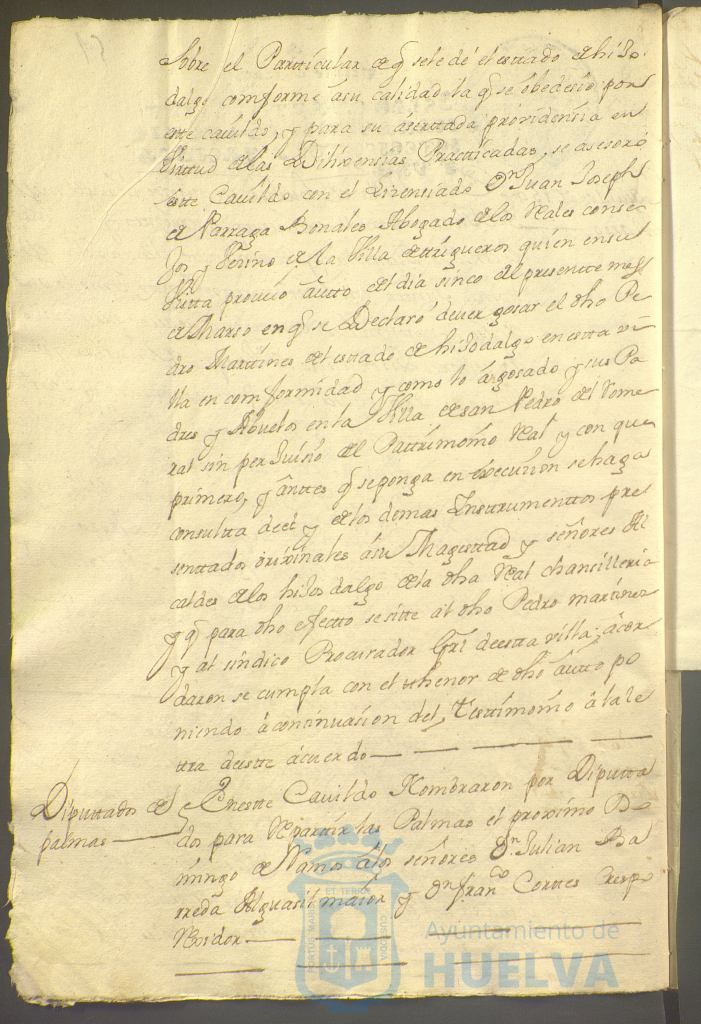 Sobre el Partticular de q̃ sele dé el esttado de hijo
dalgo comforme ásu calidad la q̃ se obedesió por
este cauildo, y para su ásertada prouidensia en
Virttud de las Dilixensias Practticadas, se asesoró
este Cauildo con el Lizensiado Dn Juan Joseph
de Narraga Bonales Abogado de los Reales conse
Jos y Vesino de la Villa de trigueros quien en su
Vistta proueió áutto el dia sinco del presentte mes
de Marso en q̃ se Declaró deuer gosar el dho Pe
dro Marttines del esttado de hijodalgo en estta vi
lla en comformidad y como lo á gosado y sus Pa
dres y Abuelos en la Villa de san Pedro del Rome
ral sin perJuisio del Pattrimonio Real y con que
primero, y ânttes q̃ seponga en execusion se haga
consultta de el y de los demas Insttrumenttos pre
senttados orixinales ásu Magesttad y señores Al
caldes de los hijos dalgo de la dha Real chansilleria
y q̃ para dho efectto se sitte al dho Pedro marttines
y al síndico Procurador Grl de estta villa; ácor
daron se cumpla con el tthenor de dho áutto po
niendo á conttinuasion del, Testtimonio á la le
ttra de estte ácuerdo
Diputtados de
palmas
En estte Cauildo Nombraron por Diputta
dos para Reparttir las Palmas el proximo Do
mingo de Ramos álos señores Dn Julian Ba
rreda Alguasil maior y dn Franco Corttes
Rexidor
PORTUS MARIS ET TERRE CUSTODIA
Ayuntamiento de
HUELVA